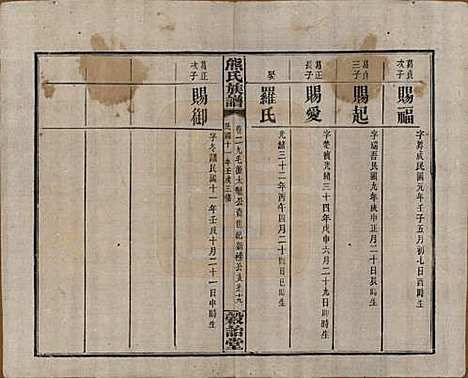 葛貞次子
賜福
字舜成民國元年壬子五月初七日酉時生
葛貞三子
賜起
字瑞吾民國九年庚申正月二十日辰時生
葛正長子
賜愛
字楚 光緒三十四年戊申六月二十九日 時生
娶
羅氏
光緒三十二年丙午四月二十四日巳時生
熊氏族譜
卷二九毛衝大 公 世 公支 十九
民國十一年壬戌三修
穀詒堂
葛正次子
賜御
字冬諸民國十一年壬戌十月二十一日申時生